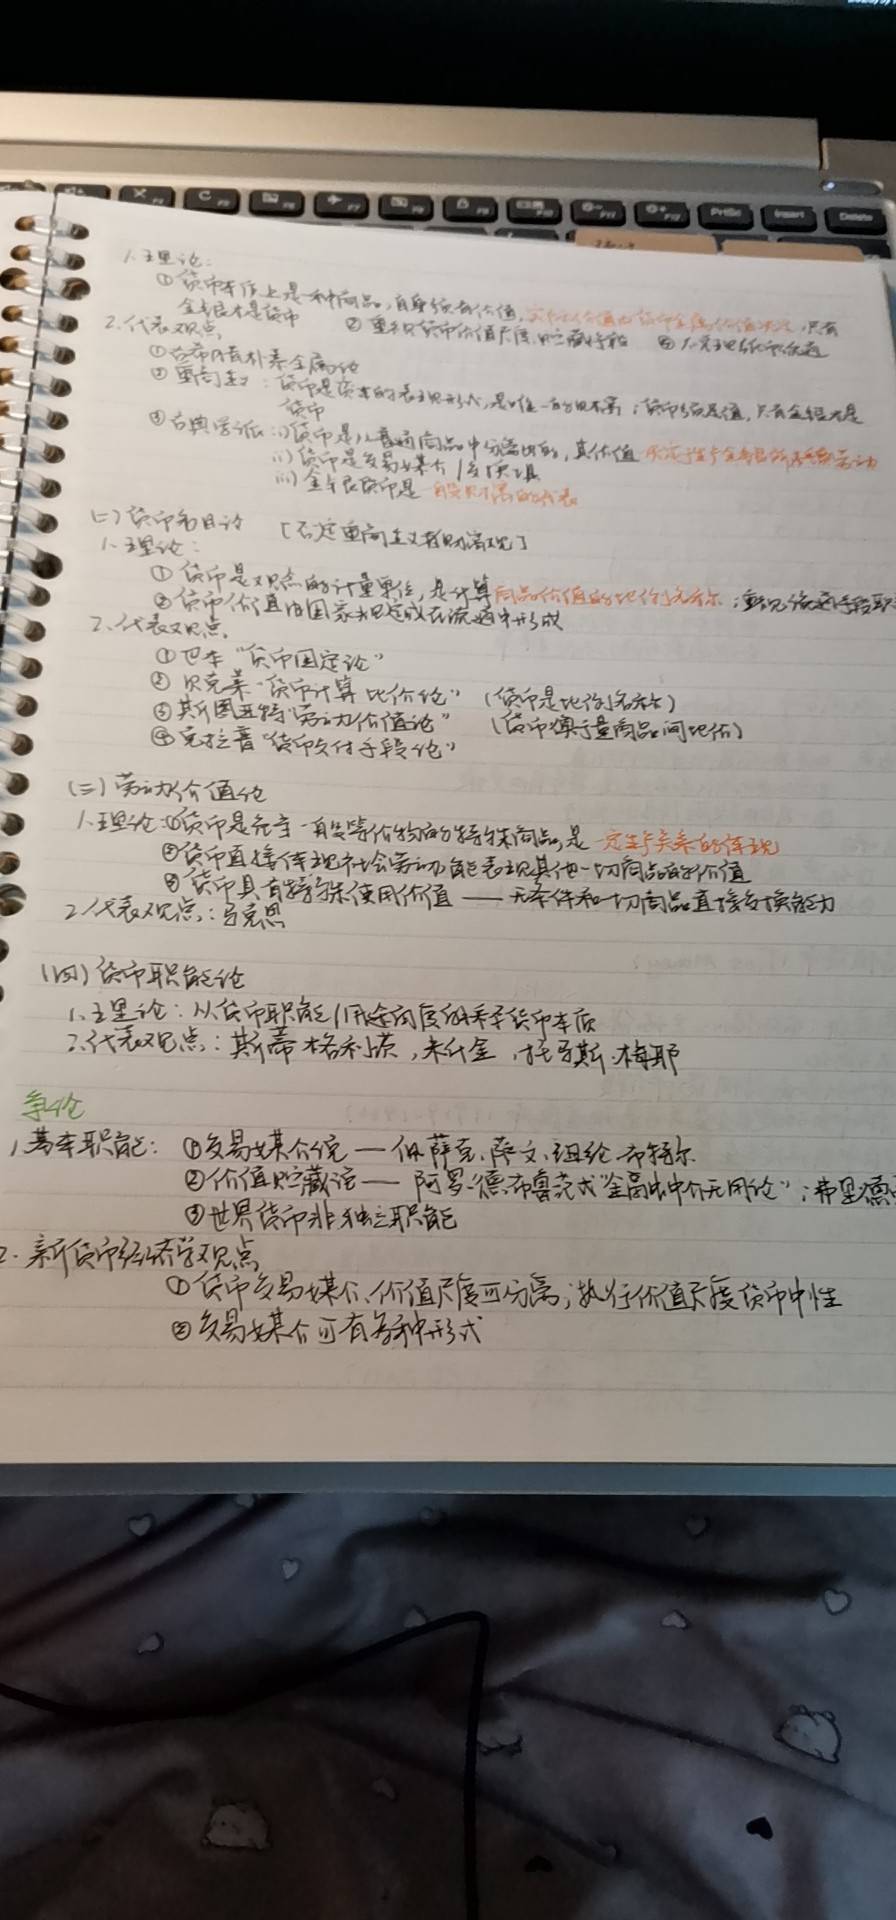 1.主理论:
①货币本质上是一种商品,自身须有价值, 只有
金与银才是货币 ②重视货币价值尺度,贮藏
2.代表观点
①古希腊朴素金属论
②重商主义:货币是资本的表现形式,是唯一的财富;货币须足值,只有金银才是
货币
③古典学派:i)货币是从普通商品中分离出的,其价值
ii)货币是交易媒介/
iii)金与银货币是一般财富的代表
(二)货币名目论 [否定重商主义者财富观]
1.主理论:
①货币是观念的计量单位,是计算商品价值的比例名称;重视流通手段
②货币价值由国家规定或在流通中形成
2.代表观点
①巴本“货币国定论”
②贝克莱“货币计算比价论”(货币是比例名称)
③斯图亚特“劳动力价值论”(货币 商品间比价)
④克拉普“货币支付手段论”
(三)劳动价值论
1.主理论:①货币是充当一般等价物的特殊商品,是一定生产关系的体现
②货币直接体现社会劳动,能表现其他一切商品的价值
③货币具有特殊使用价值——无条件和一切商品直接交换能力
2.代表观点:马克思
(四)货币职能论
1.主理论:从货币职能/用途角度解释货币本质
2.代表观点:斯蒂格利茨,米什金,托马斯·梅耶
争论
1.基本职能:①交易媒介说——伯萨克、萨文、纽伦、布特尔
②价值贮藏说——阿罗-德布鲁范式“金属中介无用论”;弗里德
③世界货币非独立职能
2.新货币经济学观点
①货币交易媒介、价值尺度可分离;执行价值尺度货币中性
②交易媒介可有多种形式
PrtSc
Insert
Delete